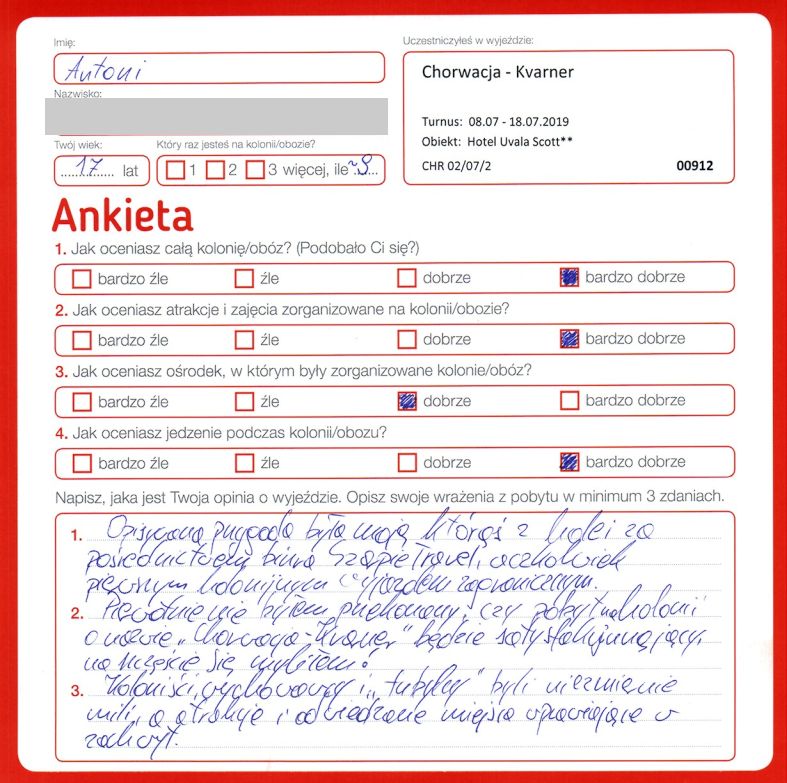 Imię:
Antoni
Nazwisko:
Twój wiek:
17 lat
Który raz jesteś na kolonii/obozie?
1 2 3 więcej, ile ~9
Uczestniczyłeś w wyjeździe:
Chorwacja - Kvarner
Turnus: 08.07 - 18.07.2019
Obiekt: Hotel Uvala Scott**
CHR 02/07/2 00912
Ankieta
1. Jak oceniasz całą kolonię/obóz? (Podobało Ci się?)
bardzo źle źle dobrze bardzo dobrze
2. Jak oceniasz atrakcje i zajęcia zorganizowane na kolonii/obozie?
bardzo źle źle dobrze bardzo dobrze
3. Jak oceniasz ośrodek, w którym były zorganizowane kolonie/obóz?
bardzo źle źle dobrze bardzo dobrze
4. Jak oceniasz jedzenie podczas kolonii/obozu?
bardzo źle źle dobrze bardzo dobrze
Napisz, jaka jest Twoja opinia o wyjeździe. Opisz swoje wrażenia z pobytu w minimum 3 zdaniach.
1. Opisywana przygoda była moją którąś z kolei za
pośrednictwem biura Travel, aczkolwiek
pierwszym kolonijnym wyjazdem zagranicznym.
2. Pierwotnie nie byłem przekonany, czy pobyt na kolonii
o nazwie "Chorwacja-Kvarner" będzie
na szczęście się myliłem!
3. Koloniści, wychowawcy i "tubylcy" byli niezmiernie
mili, a atrakcje i odwiedzane miejsca wprawiające w
zachwyt.